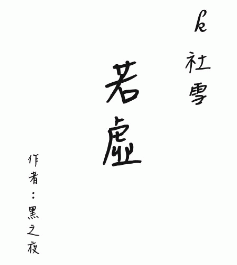 k社雪
若虛
作者：黑之夜